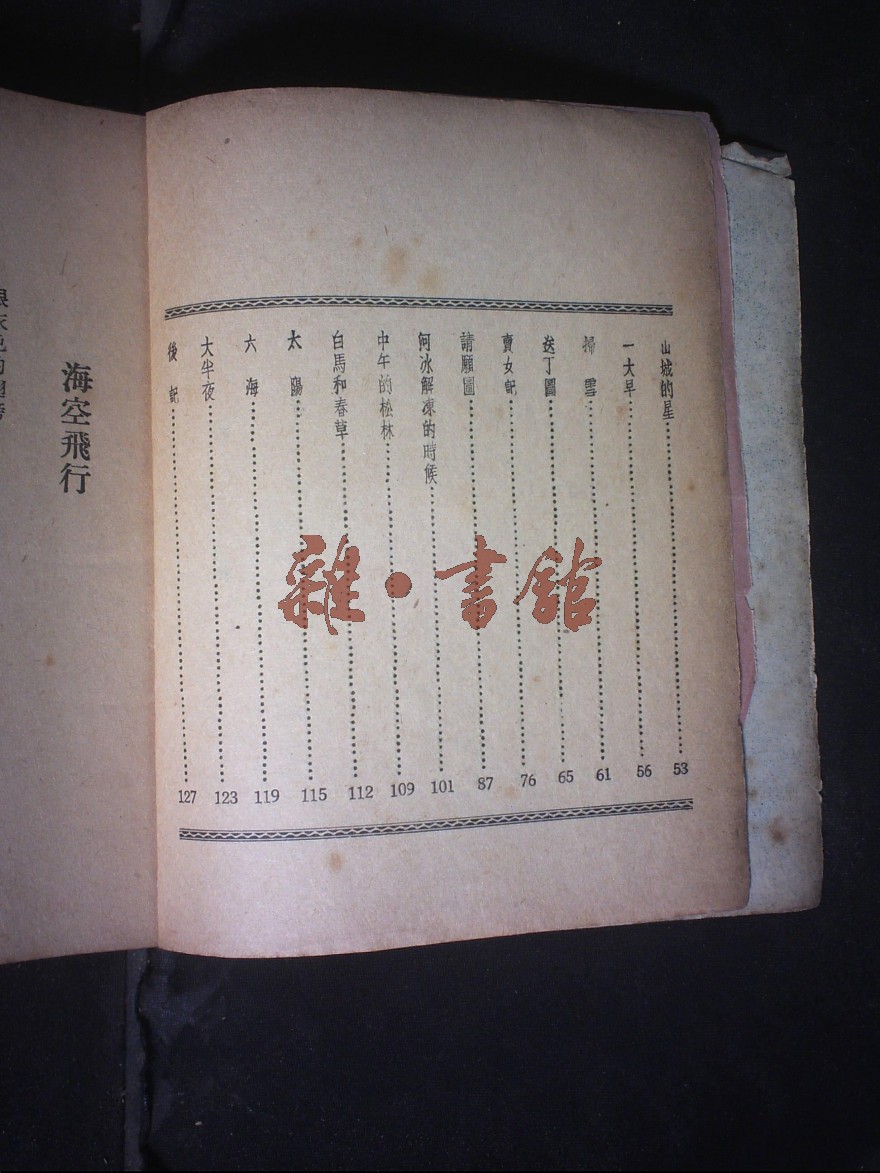 山城的星……53
一大早……56
掃雲……61
送丁圖……65
賣女記……76
請願圖……87
河冰解凍的時候……101
中午的松林……109
白馬和春草……112
太陽……115
六海……119
大半夜……123
後記……127
海空飛行
雜·書館